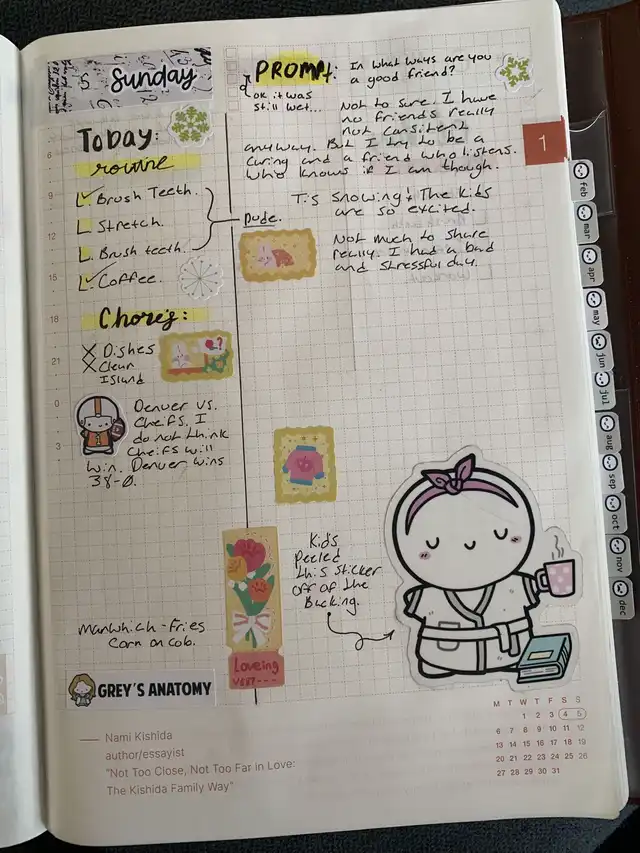 Sunday
Today:
routine
Brush Teeth.
Stretch.
Brush teeth.
Coffee.
Dude.
Chores:
Dishes
Clean
Island
Denver vs.
Cheifs. I
do not think
Cheifs will
win. Denver wins
38-0.
Manwhich - Fries
Corn on cob.
GREY'S ANATOMY
PROMPT:
In what ways are you
a good friend?
ok it was
still wet...
Not to sure. I have
no friends really
not consitent
anyway. But I try to be a
caring and a friend who listens.
Who knows if I am though.
Tis snowing! The kids
are so excited.
Not much to share
really. I had a bad
and stressful day.
Kids
peeled
this sticker
off of the
Backing.
Loveing
VERY---
6
9
12
15
18
21
0
3
1
feb
mar
apr
may
jun
jul
aug
sep
oct
nov
dec
M T W T F S S
1 2 3 4 5
6 7 8 9 10 11 12
13 14 15 16 17 18 19
20 21 22 23 24 25 26
27 28 29 30 31
— Nami Kishida
author/essayist
"Not Too Close, Not Too Far in Love:
The Kishida Family Way"